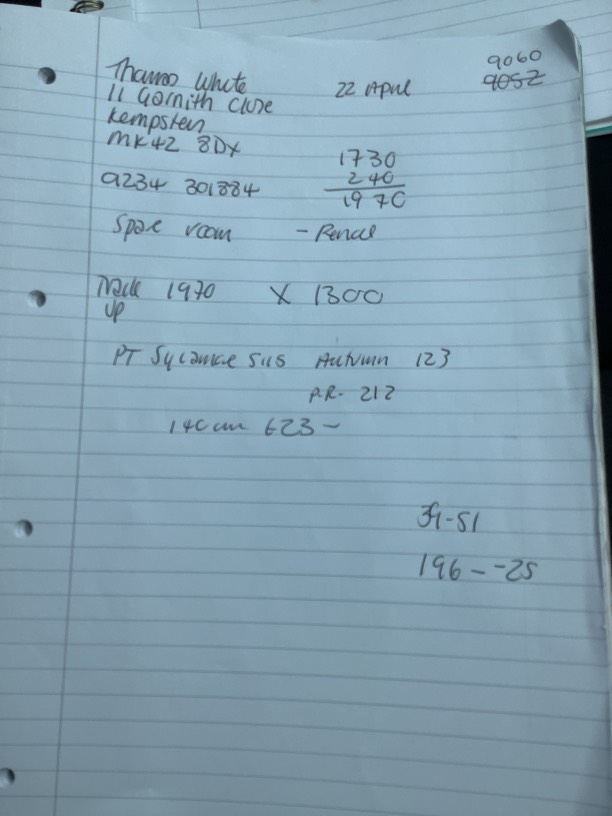 9060
Thomas White 22 April 9052
11 Gornith Close
Kempsten
MK42 8DX
1730
240
01234 301884 1970
Spare room - Pencil
Track 1970 X 1300
up
PT Sycamore SUS Autumn 123
P.R. 212
140cm 623 -
39-51
196 - -25